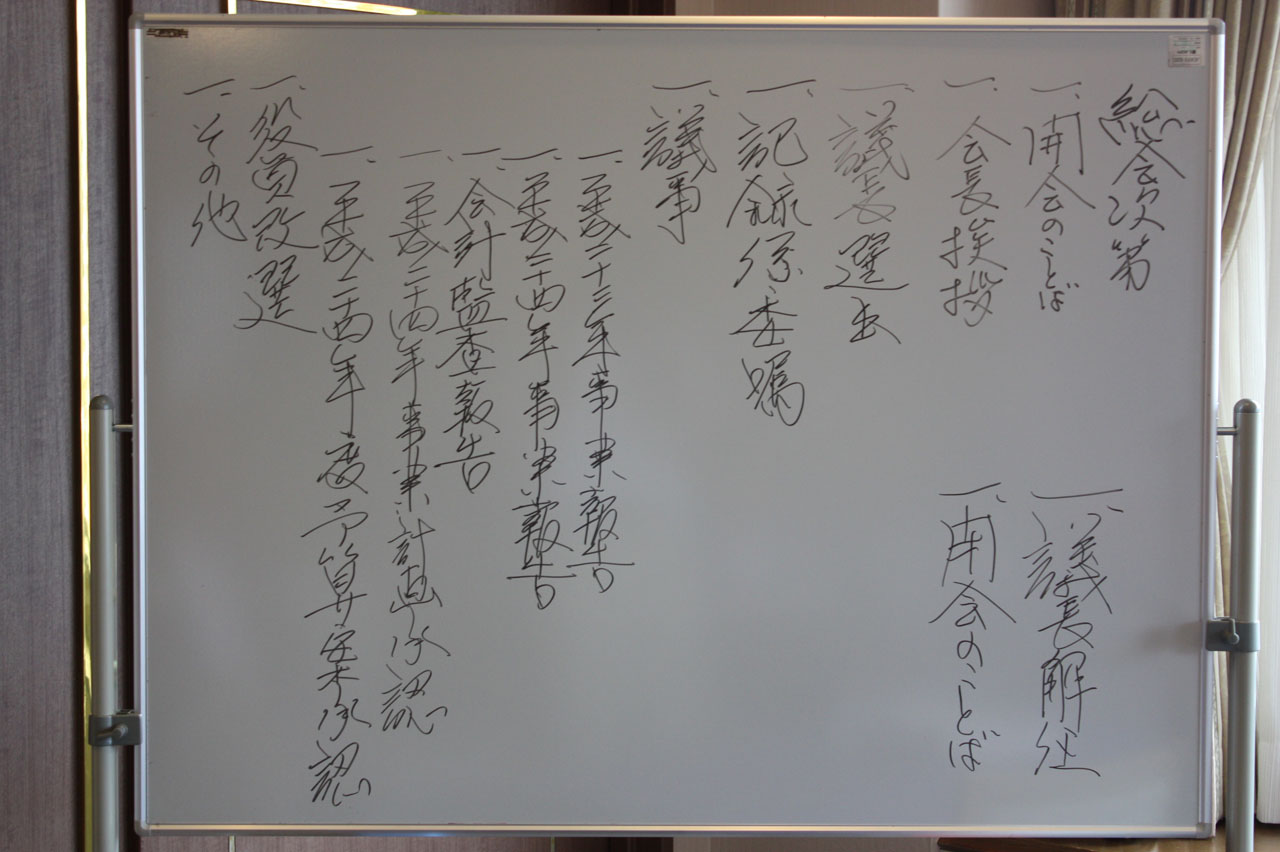 総会次第
一、開会のことば
一、会長挨拶
一、議長選出
一、記録係委嘱
一、議事
一、平成二十三年事業報告
一、平成二十四年事業報告
一、会計監査報告
一、平成二十四年事業計画承認
一、平成二十四年度予算案承認
一、役員改選
一、その他
一、議長解任
一、閉会のことば